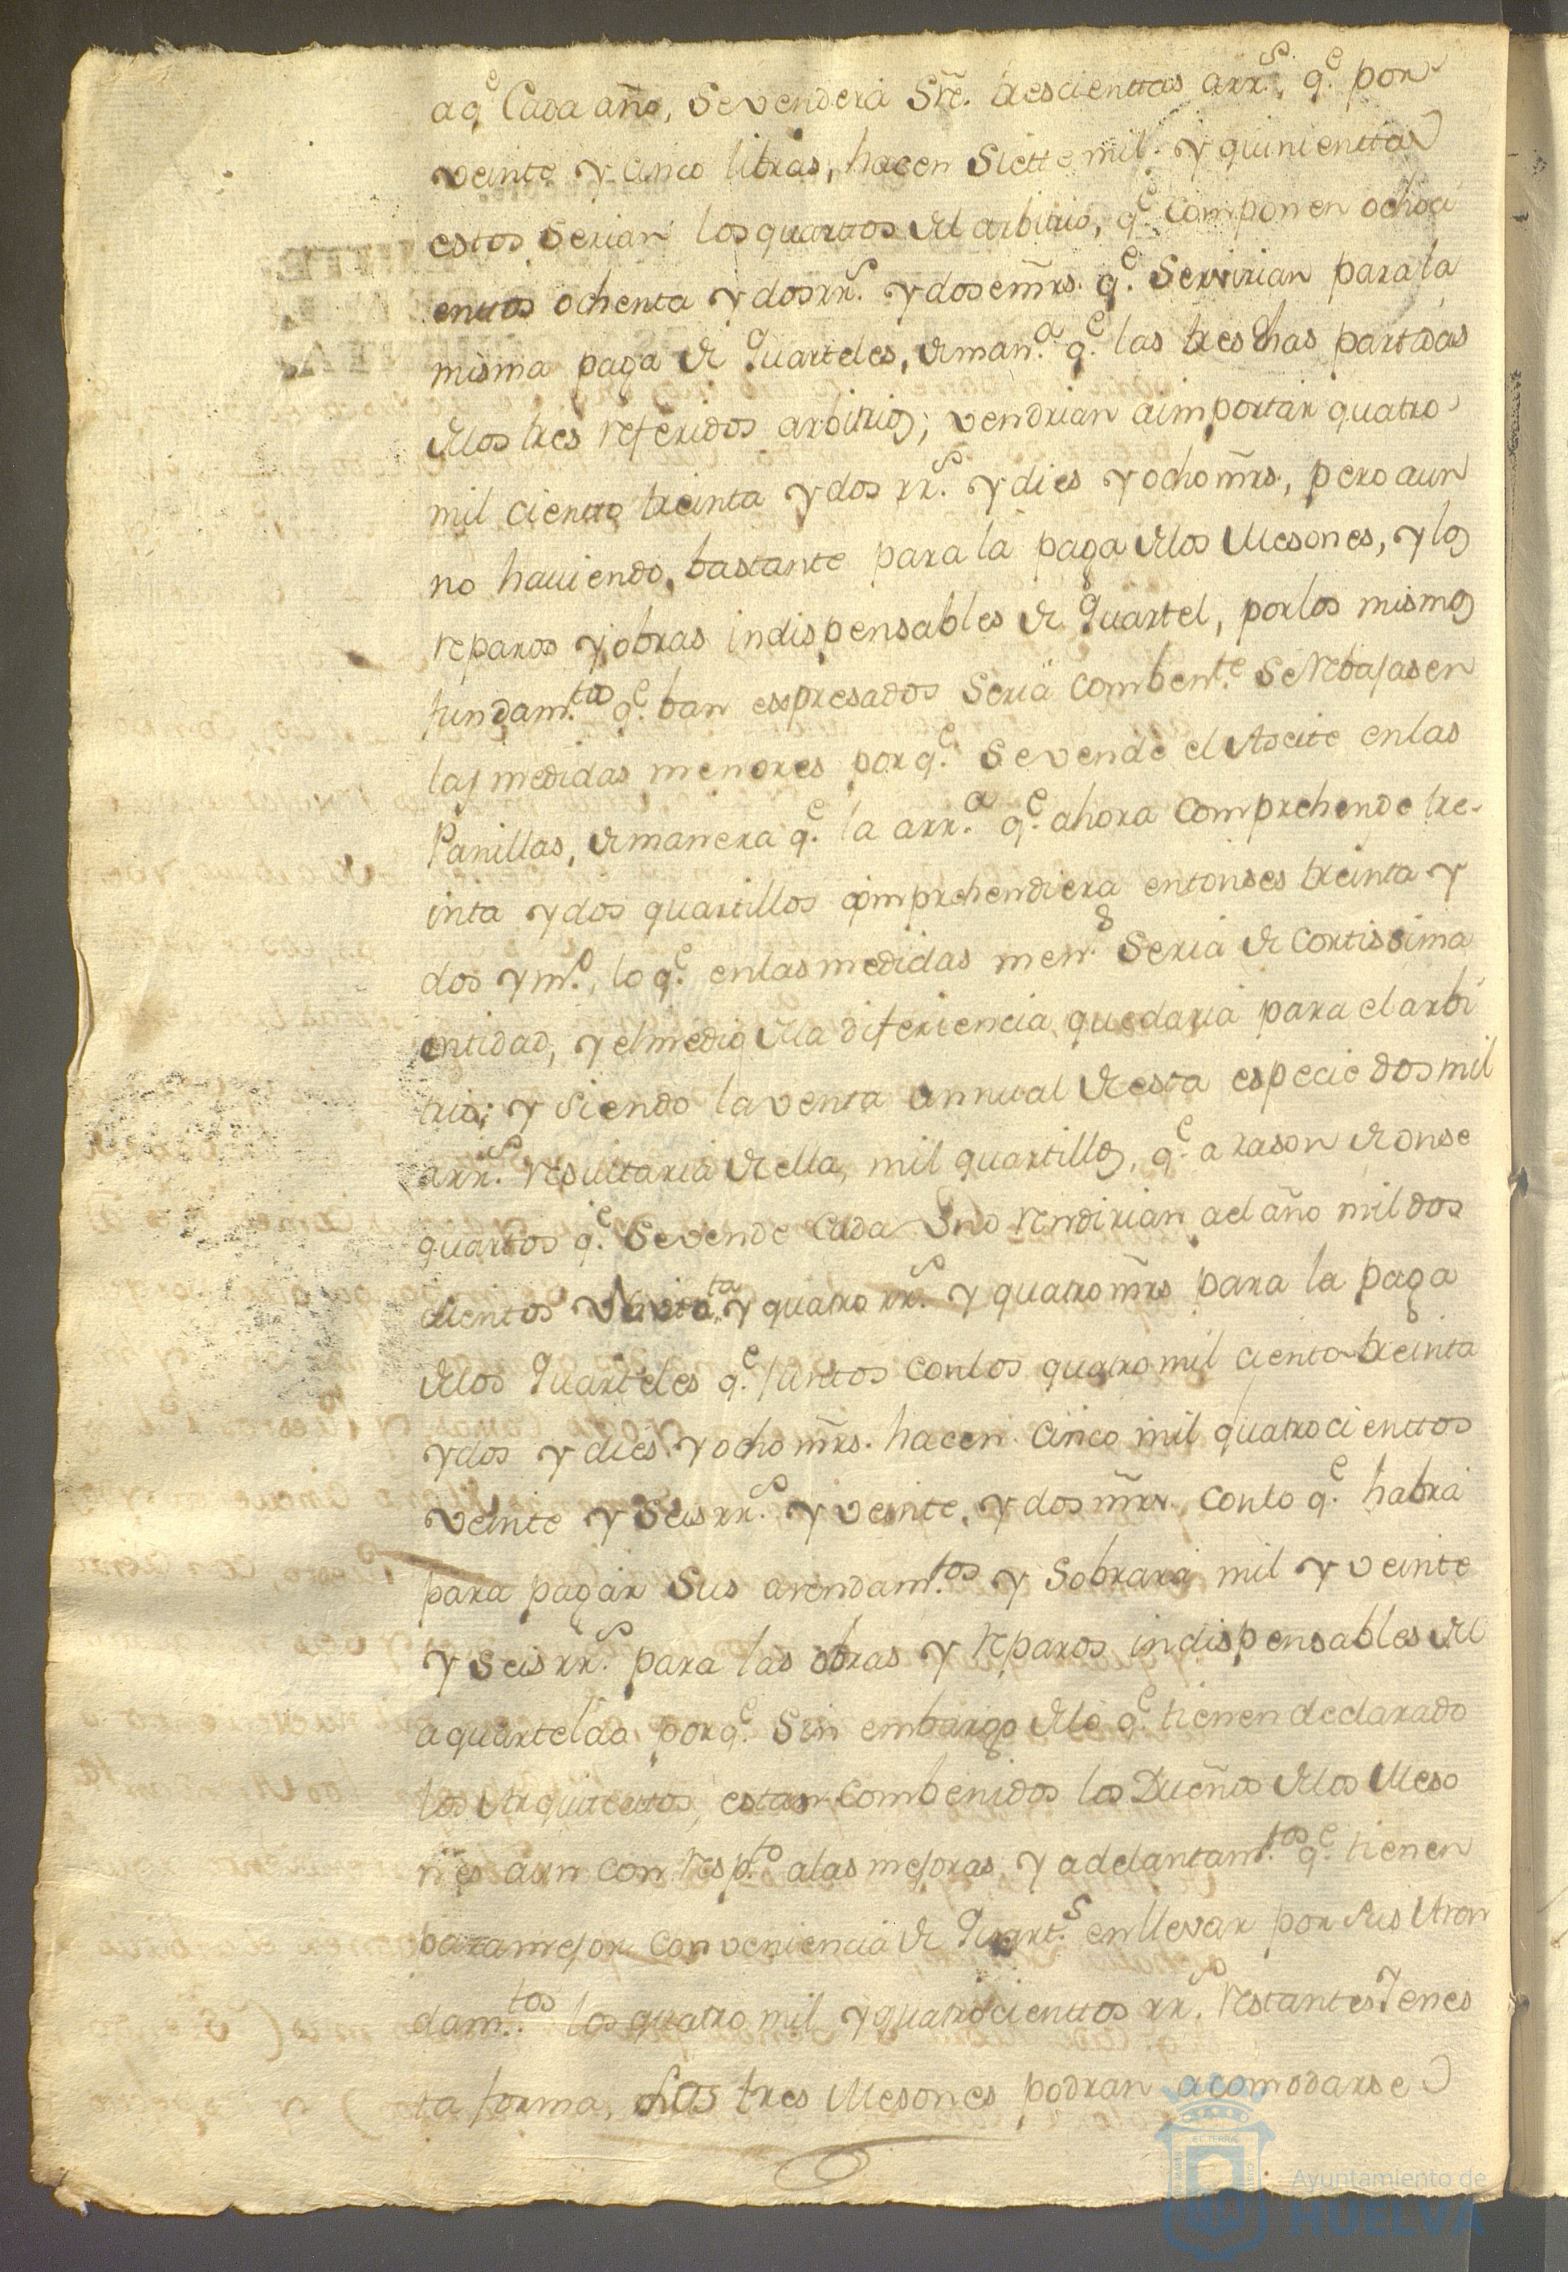 aq.e Cada año, se vendera Sre. trescienttas arr.s, q.e por
veinte y cinco libras, hacen siette mil y quinientta
estos serian los quarttos del arbitrio, q.e componen ochoci
enttos ochenta y dos rr.s y dos mrs. q.e servirian para la
misma paga de quarteles, de man.a q.e las tres dhas partidas
de los tres referidos arbitrios; vendrian aimportar quatro
mil ciento treinta y dos rr.s y dies y ocho mrs., pero aun
no haviendo, bastante para la paga de los Mesones, y los
reparos y obras indispensables de quartel, por los mismos
fundam.tos q.e ban espresados seria comben.te se rebajasen
las medidas menores por q.e se vende el Aceite en las
Panillas, de manera q.e la arr.a q.e ahora comprehende tre-
inta y dos quartillos comprehendiera entonses treinta y
dos y m.o, lo q.e en las medidas men.s seria de cortissima
entidad, y el medio de la diferiencia quedaria para el arbi
trio; y siendo la venta annual de esta especie dos mil
arr.s resultaria de ella, mil quartillos, q.e a rason de onse
quartos q.e se vende cada uno rendirian al año mil dos
cientos y quatro rr.s y quatro mrs para la paga
de los quarteles q.e juntos con los quatro mil ciento treinta
y dos y dies y ocho mrs. hacen cinco mil quatrocienttos
veinte y seis rr.s y veinte, y dos mrs, con lo q.e habra
para pagar sus arrendam.tos y sobrara mil y veinte
y seis rr.s para las obras y reparos indispensables del
aquartelda porq.e sin embargo de lo q.e tienen declarado
los Arquitectos, estan combenidos los Dueños de los Meso
nes aun con resp.to a las mejoras, y adelantam.tos q.e tienen
para mejor conveniencia de quart.s en llevar por sus Arren
dam.tos los quatro mil y quatrocienttos rr.s restantes Y en es
ta forma, dhos tres Mesones podran acomodarse
Ayuntamiento de
HUELVA